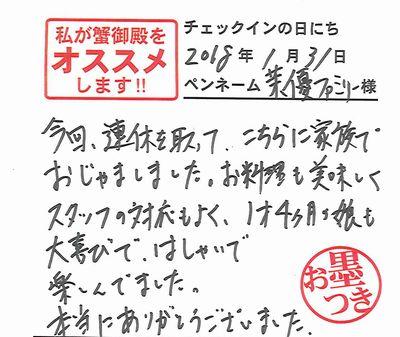 私が蟹御殿を
オススメ
します!!
チェックインの日にち
2018年 1月31日
ペンネーム 菜優ファミリー様
今回、連休を取って、こちらに家族で
おじゃましました。お料理も美味しく
スタッフの対応もよく、1才4ヶ月の娘も
大喜びで、はしゃいで
楽しんでました。
本当にありがとうございました。
お墨つき